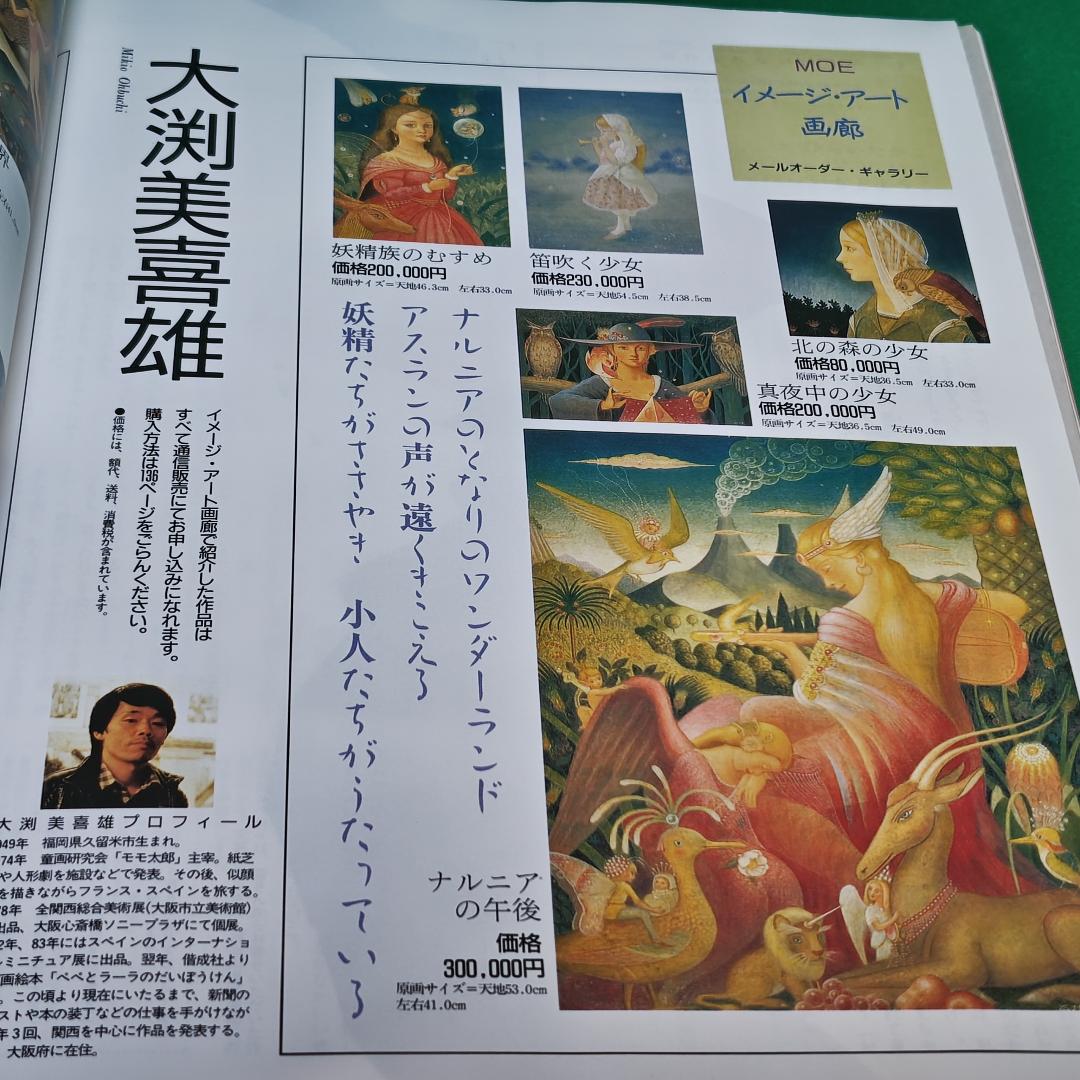 大渕美喜雄
Mikio Ohbuchi
MOE
イメージ・アート
画廊
メールオーダー・ギャラリー
妖精族のむすめ
価格200,000円
原画サイズ=天地46.3cm 左右33.0cm
笛吹く少女
価格230,000円
原画サイズ=天地54.5cm 左右38.5cm
北の森の少女
価格80,000円
原画サイズ=天地36.5cm 左右33.0cm
真夜中の少女
価格200,000円
原画サイズ=天地36.5cm 左右49.0cm
ナルニアのとなりのワンダーランド
アスランの声が遠くきこえる
妖精たちがささやき 小人たちがうたっている
ナルニア
の午後
価格
300,000円
原画サイズ=天地53.0cm
左右41.0cm
イメージ・アート画廊で紹介した作品は
すべて通信販売にてお申し込みになれます。
購入方法は136ページをごらんください。
●価格には、額代、送料、消費税が含まれています。
大渕美喜雄プロフィール
949年 福岡県久留米市生まれ。
974年 童画研究会「モモ太郎」主宰。紙芝
や人形劇を施設などで発表。その後、似顔
を描きながらフランス・スペインを旅する。
78年 全関西総合美術展(大阪市立美術館)
出品、大阪心斎橋ソニープラザにて個展。
2年、83年にはスペインのインターナショ
ルミニチュア展に出品。翌年、偕成社より
画絵本「ペペとラーラのだいぼうけん」
。この頃より現在にいたるまで、新聞の
ストや本の装丁などの仕事を手がけなが
年3回、関西を中心に作品を発表する。
大阪府に在住。